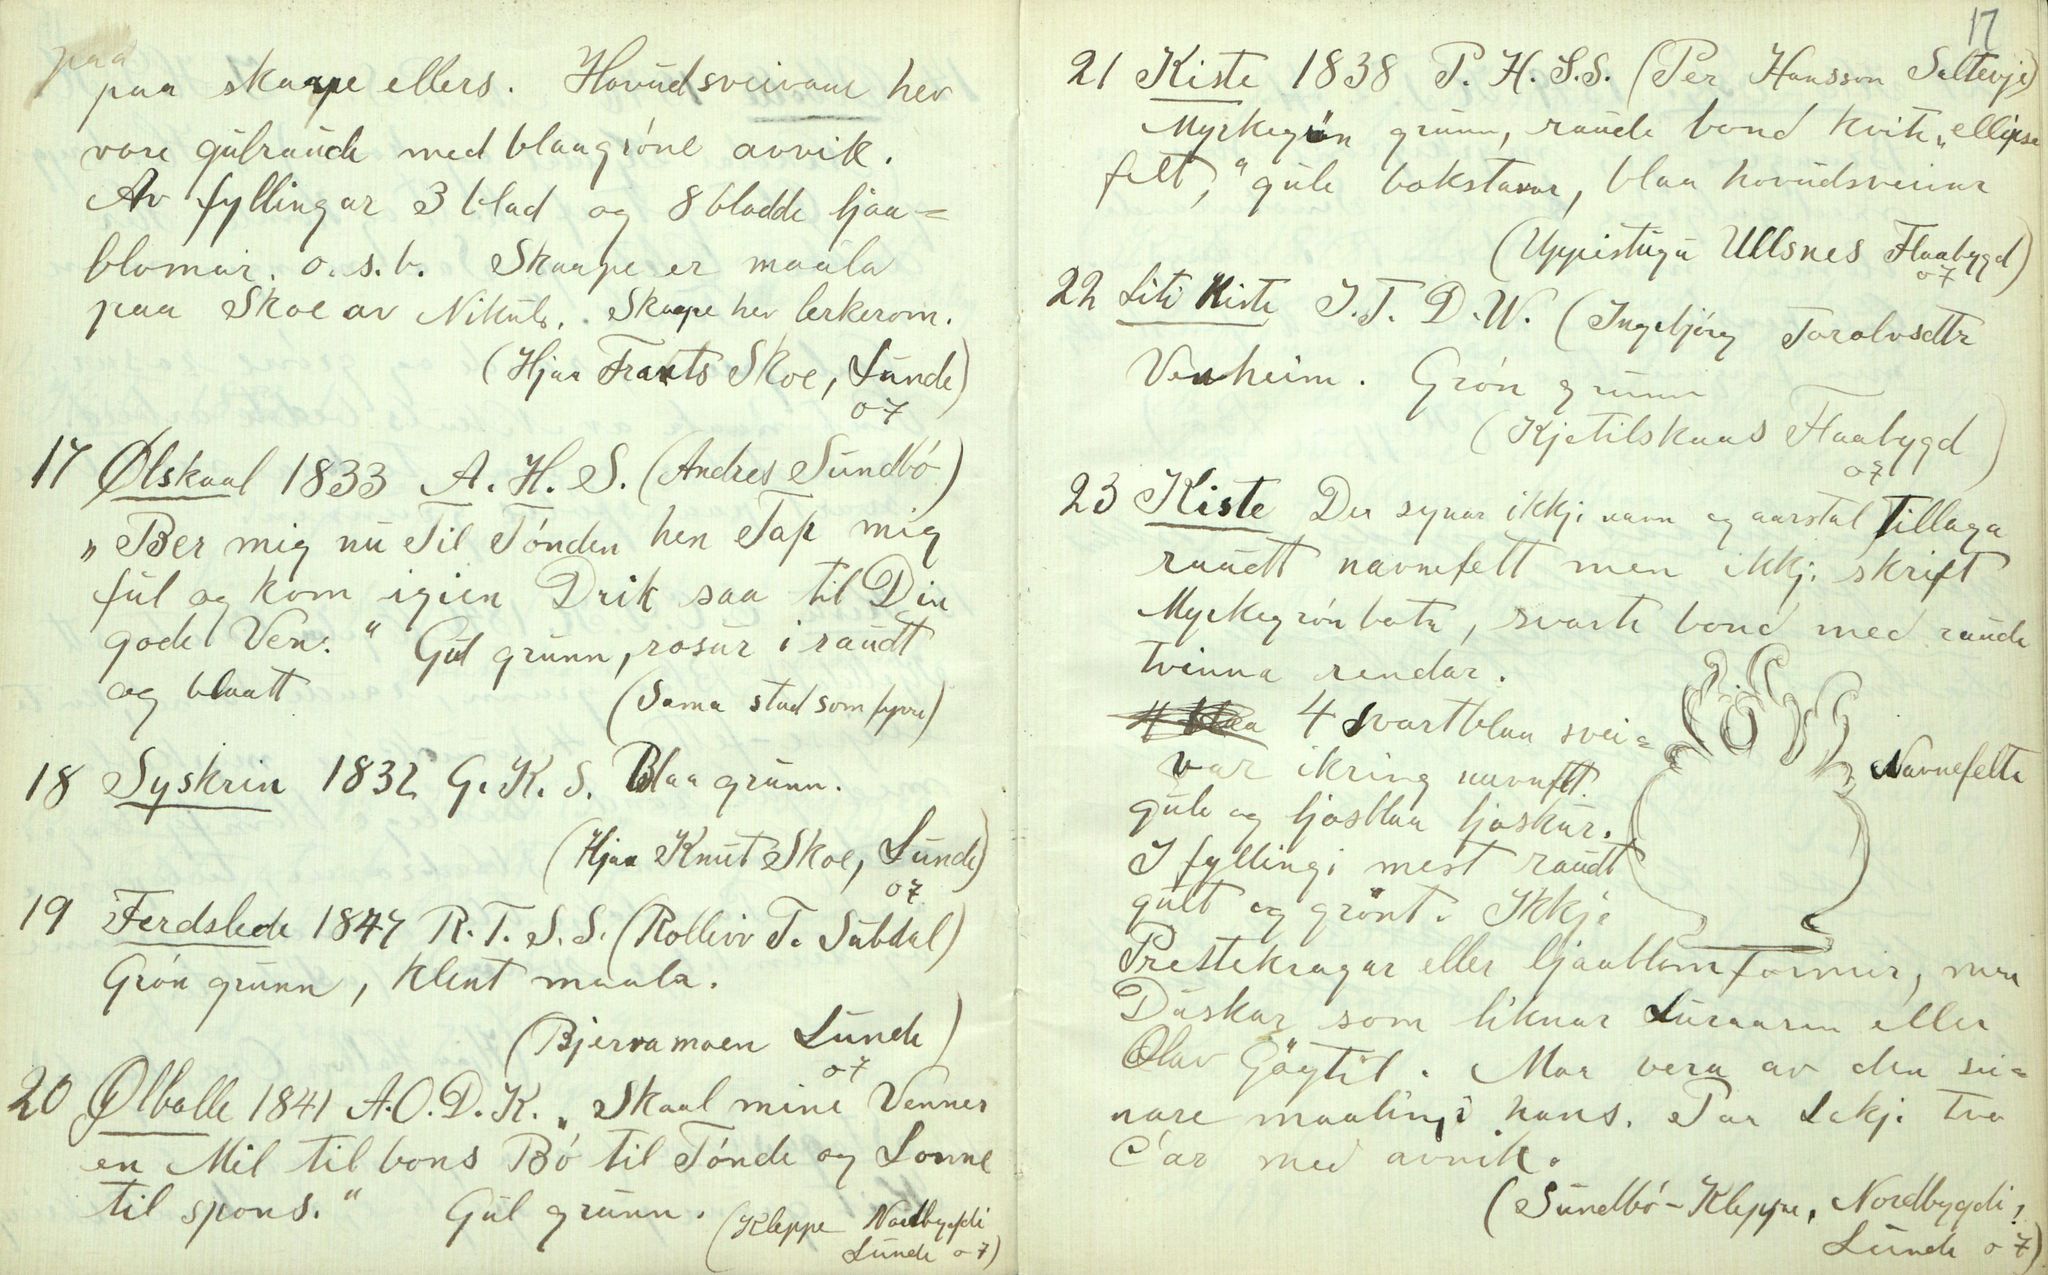 paa
paa skaape ellers. Hovudsveivane hev
vore gulraude med blaagröne avvik.
Av fyllingar 3 blad og 8 bladde ljaa=
blomar. o.s.b. Skaape er maala
paa Skoe av Nikuls. Skaape hev lerkerom.
(Hjaa Frants Skoe, Lunde)
07
17 Ølskaal 1833 A. H. S. (Andres Sundbö)
„Ber mig nu Til Tönden hen Tap mig
ful og kom igien Drik saa til Din
gode Ven." Gul grunn, rosur i raudt
og blaatt
(Sama stad som fyrre)
18 Syskrin 1832 G. K. S. Blaa grunn.
(Hjaa Knut Skoe, Lunde)
07
19 Ferdslede 1847 R. T. S. S. (Rolleiv T. Subdal)
Grön grunn, klent maala.
(Bjervamoen Lunde)
07
20 Ølbolle 1841 A.O.D.K. „Skaal mine Venner
en Mil til bons Bö til Tönde og Lonne
til spons." Gul grunn. (Kleppe Nordbygdi
Lunde 07)
17
21 Kiste 1838 P. H. S.S. (Per Hansson Saltevje)
Myrkegrön grunn, raude bond kvite „ellipse
felt," gule bokstavar, blaa hovudsveivar
(Uppistugu Ullsnes Flaabygd)
07
22 Liti Kiste I. T. D. W. (Ingebjörg Toralvsdtr
Venheim. Grön grunn
(Kjetilskaas Flaabygd)
07
23 Kiste Der synar ikkje navn og aarstal Tillaga
raudt navnefelt men ikkje skrift
Myrkegrön botn, svarte bond med raude
tvinna rendar.
4 blaa 4 svartblaa svei=
var ikring navnflt.
gule og ljosblaa ljoskur.
I fyllingi mest raudt
gult og grönt. Ikkje
Navnefelte
Prestekragar eller ljaablomformer, men
Duskar som liknar Luraaren eller
Olav Göytil. Maa vera av den sei=
nare maalingi hans. Par Lekje tvo
C'ar med avvik.
(Sundbö-Kleppe, Nordbygdi,
Lunde 07)